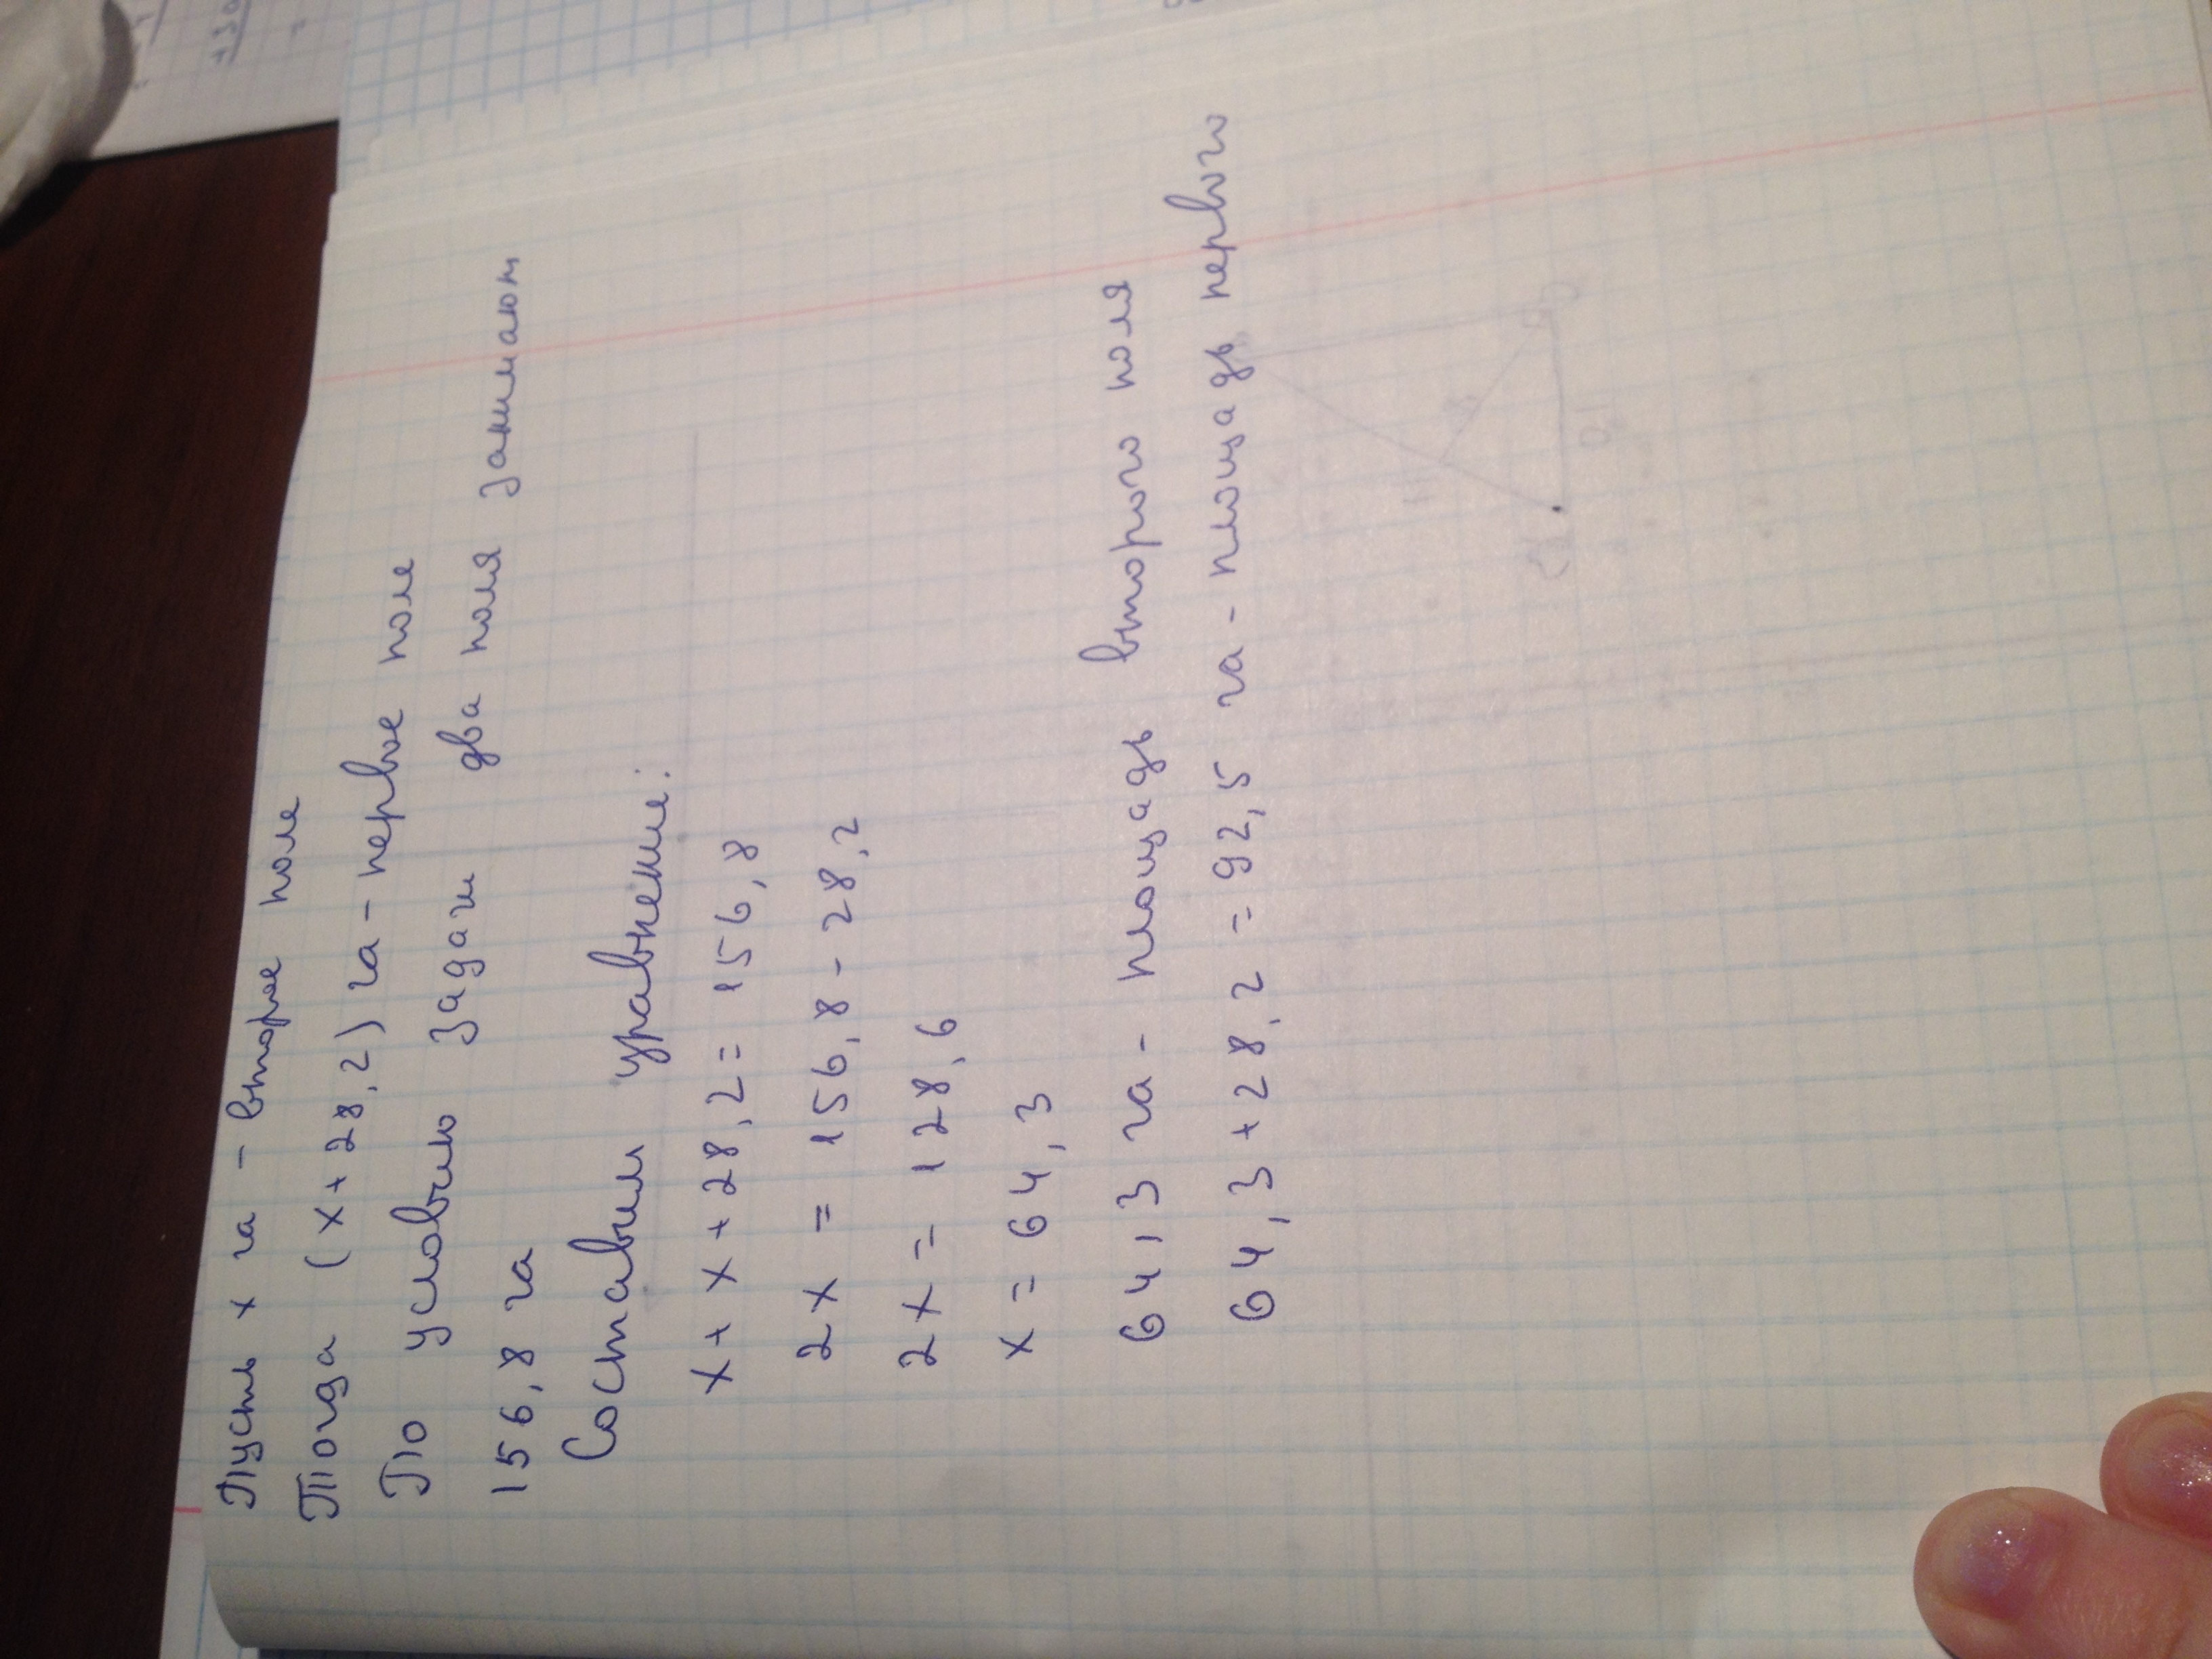 Пусть x га - второе поле
Тогда (x + 28,2) га - первое поле
По условию задачи два поля занимают
156,8 га
Составим уравнение:
x + x + 28,2 = 156,8
2x = 156,8 - 28,2
2x = 128,6
x = 64,3
64,3 га - площадь второго поля
64,3 + 28,2 = 92,5 га - площадь первого